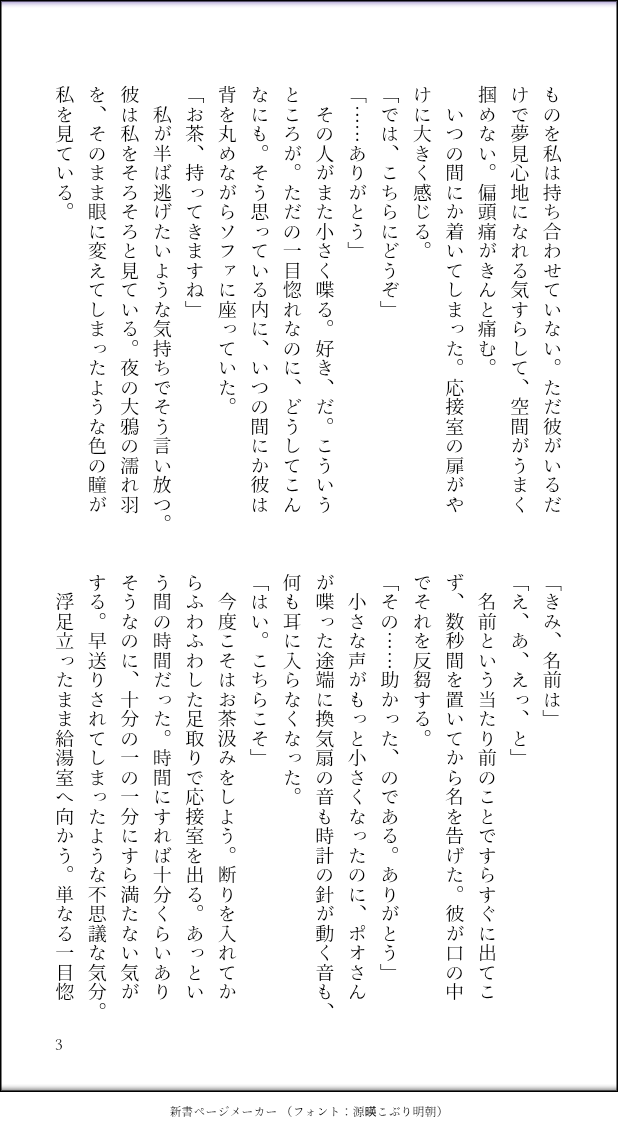 ものを私は持ち合わせていない。ただ彼がいるだ
けで夢見心地になれる気すらして、空間がうまく
掴めない。偏頭痛がきんと痛む。
　いつの間にか着いてしまった。応接室の扉がや
けに大きく感じる。
「では、こちらにどうぞ」
「……ありがとう」
　その人がまた小さく喋る。好き、だ。こういう
ところが。ただの一目惚れなのに、どうしてこん
なにも。そう思っている内に、いつの間にか彼は
背を丸めながらソファに座っていた。
「お茶、持ってきますね」
　私が半ば逃げたいような気持ちでそう言い放つ。
彼は私をそろそろと見ている。夜の大鴉の濡れ羽
を、そのまま眼に変えてしまったような色の瞳が
私を見ている。
「きみ、名前は」
「え、あ、えっ、と」
　名前という当たり前のことですらすぐに出てこ
ず、数秒間を置いてから名を告げた。彼が口の中
でそれを反芻する。
「その……助かった、のである。ありがとう」
　小さな声がもっと小さくなったのに、ポオさん
が喋った途端に換気扇の音も時計の針が動く音も、
何も耳に入らなくなった。
「はい。こちらこそ」
　今度こそはお茶汲みをしよう。断りを入れてか
らふわふわした足取りで応接室を出る。あっとい
う間の時間だった。時間にすれば十分くらいあり
そうなのに、十分の一の一分にすら満たない気が
する。早送りされてしまったような不思議な気分。
　浮足立ったまま給湯室へ向かう。単なる一目惚
3
新書ページメーカー（フォント：源暎こぶり明朝）